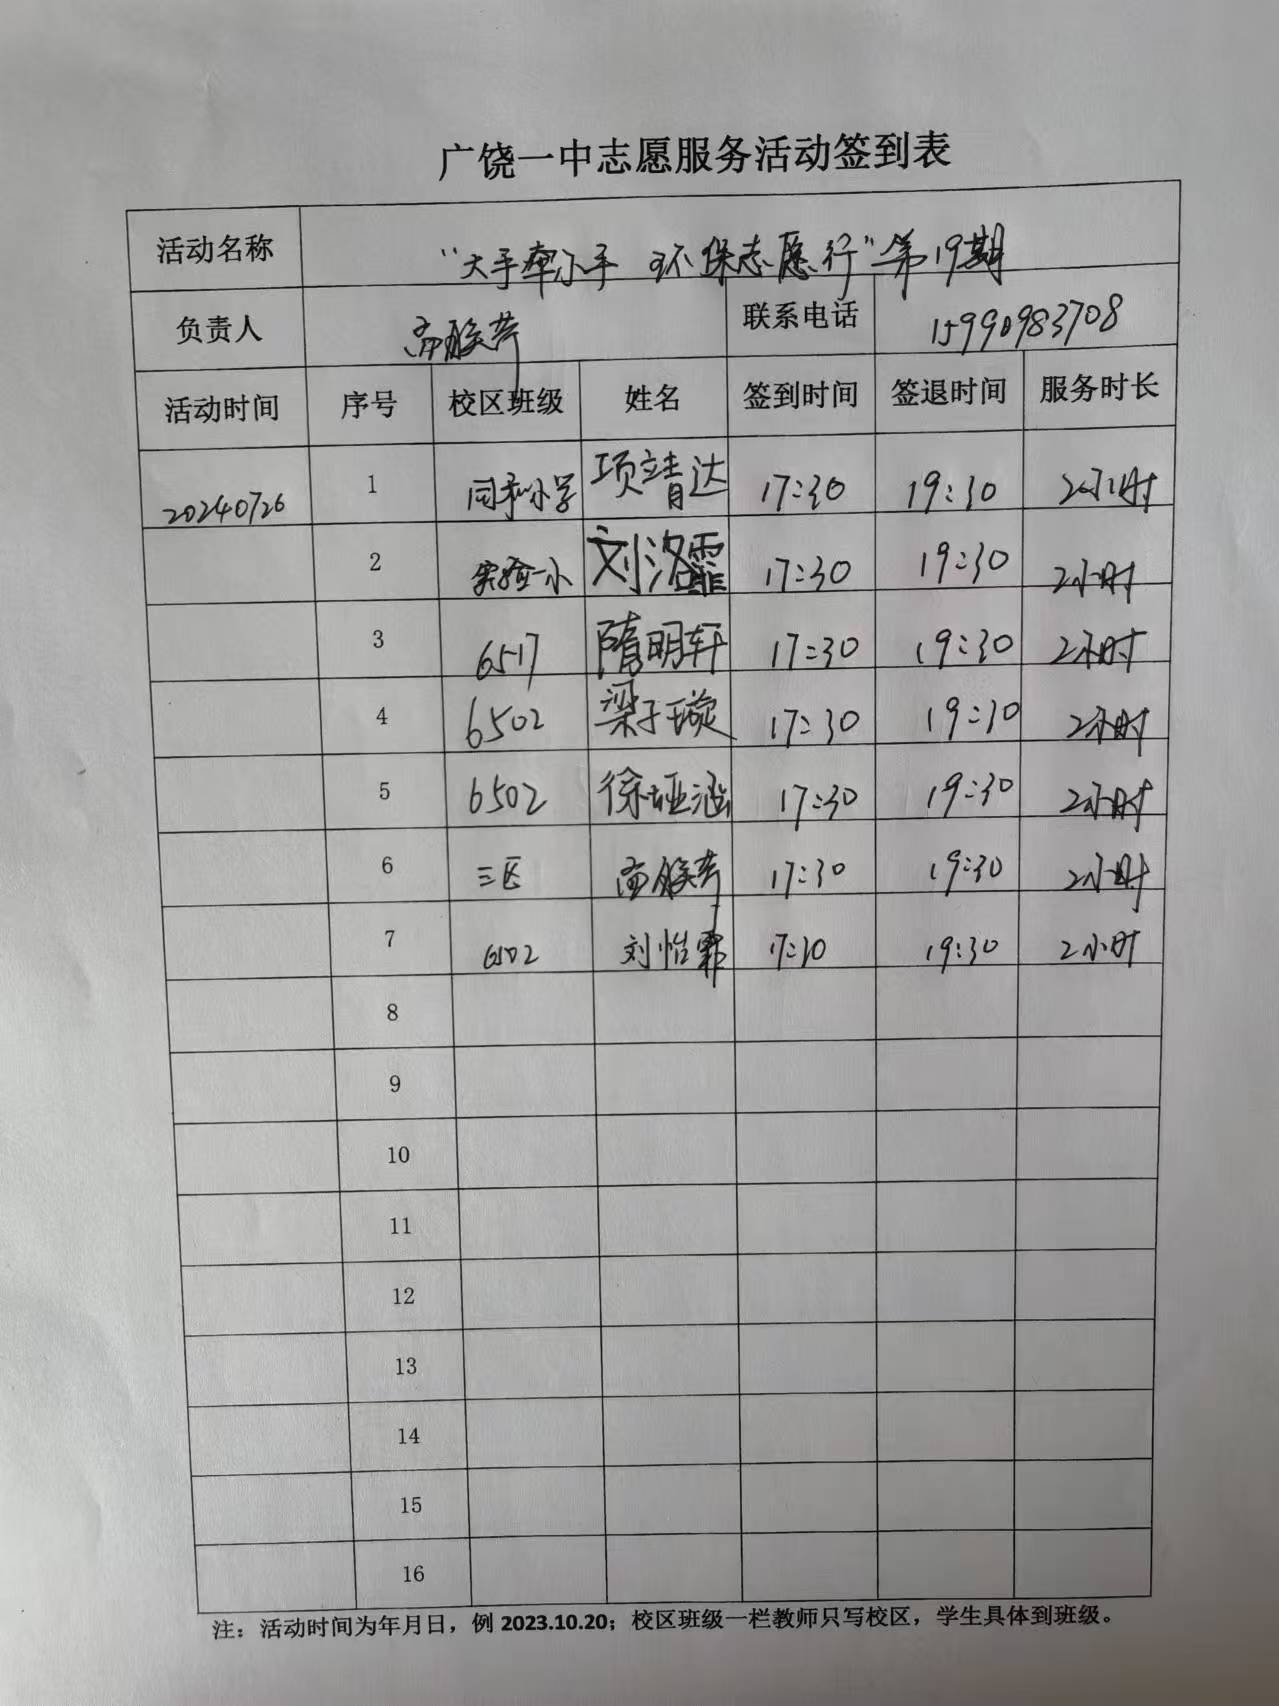 广饶一中志愿服务活动签到表
活动名称 “大手牵小手 环保志愿行”第19期
负责人 联系电话 15990983708
活动时间 序号 校区班级 姓名 签到时间 签退时间 服务时长
20240726 1 同和小学 项靖达 17:30 19:30 2小时
2 实验一小 刘洛霏 17:30 19:30 2小时
3 6517 隋明轩 17:30 19:30 2小时
4 6502 梁子璇 17:30 19:30 2小时
5 6502 徐垭涵 17:30 19:30 2小时
6 三区 17:30 19:30 2小时
7 6502 刘怡霏 17:30 19:30 2小时
8
9
10
11
12
13
14
15
16
注：活动时间为年月日，例 2023.10.20；校区班级一栏教师只写校区，学生具体到班级。